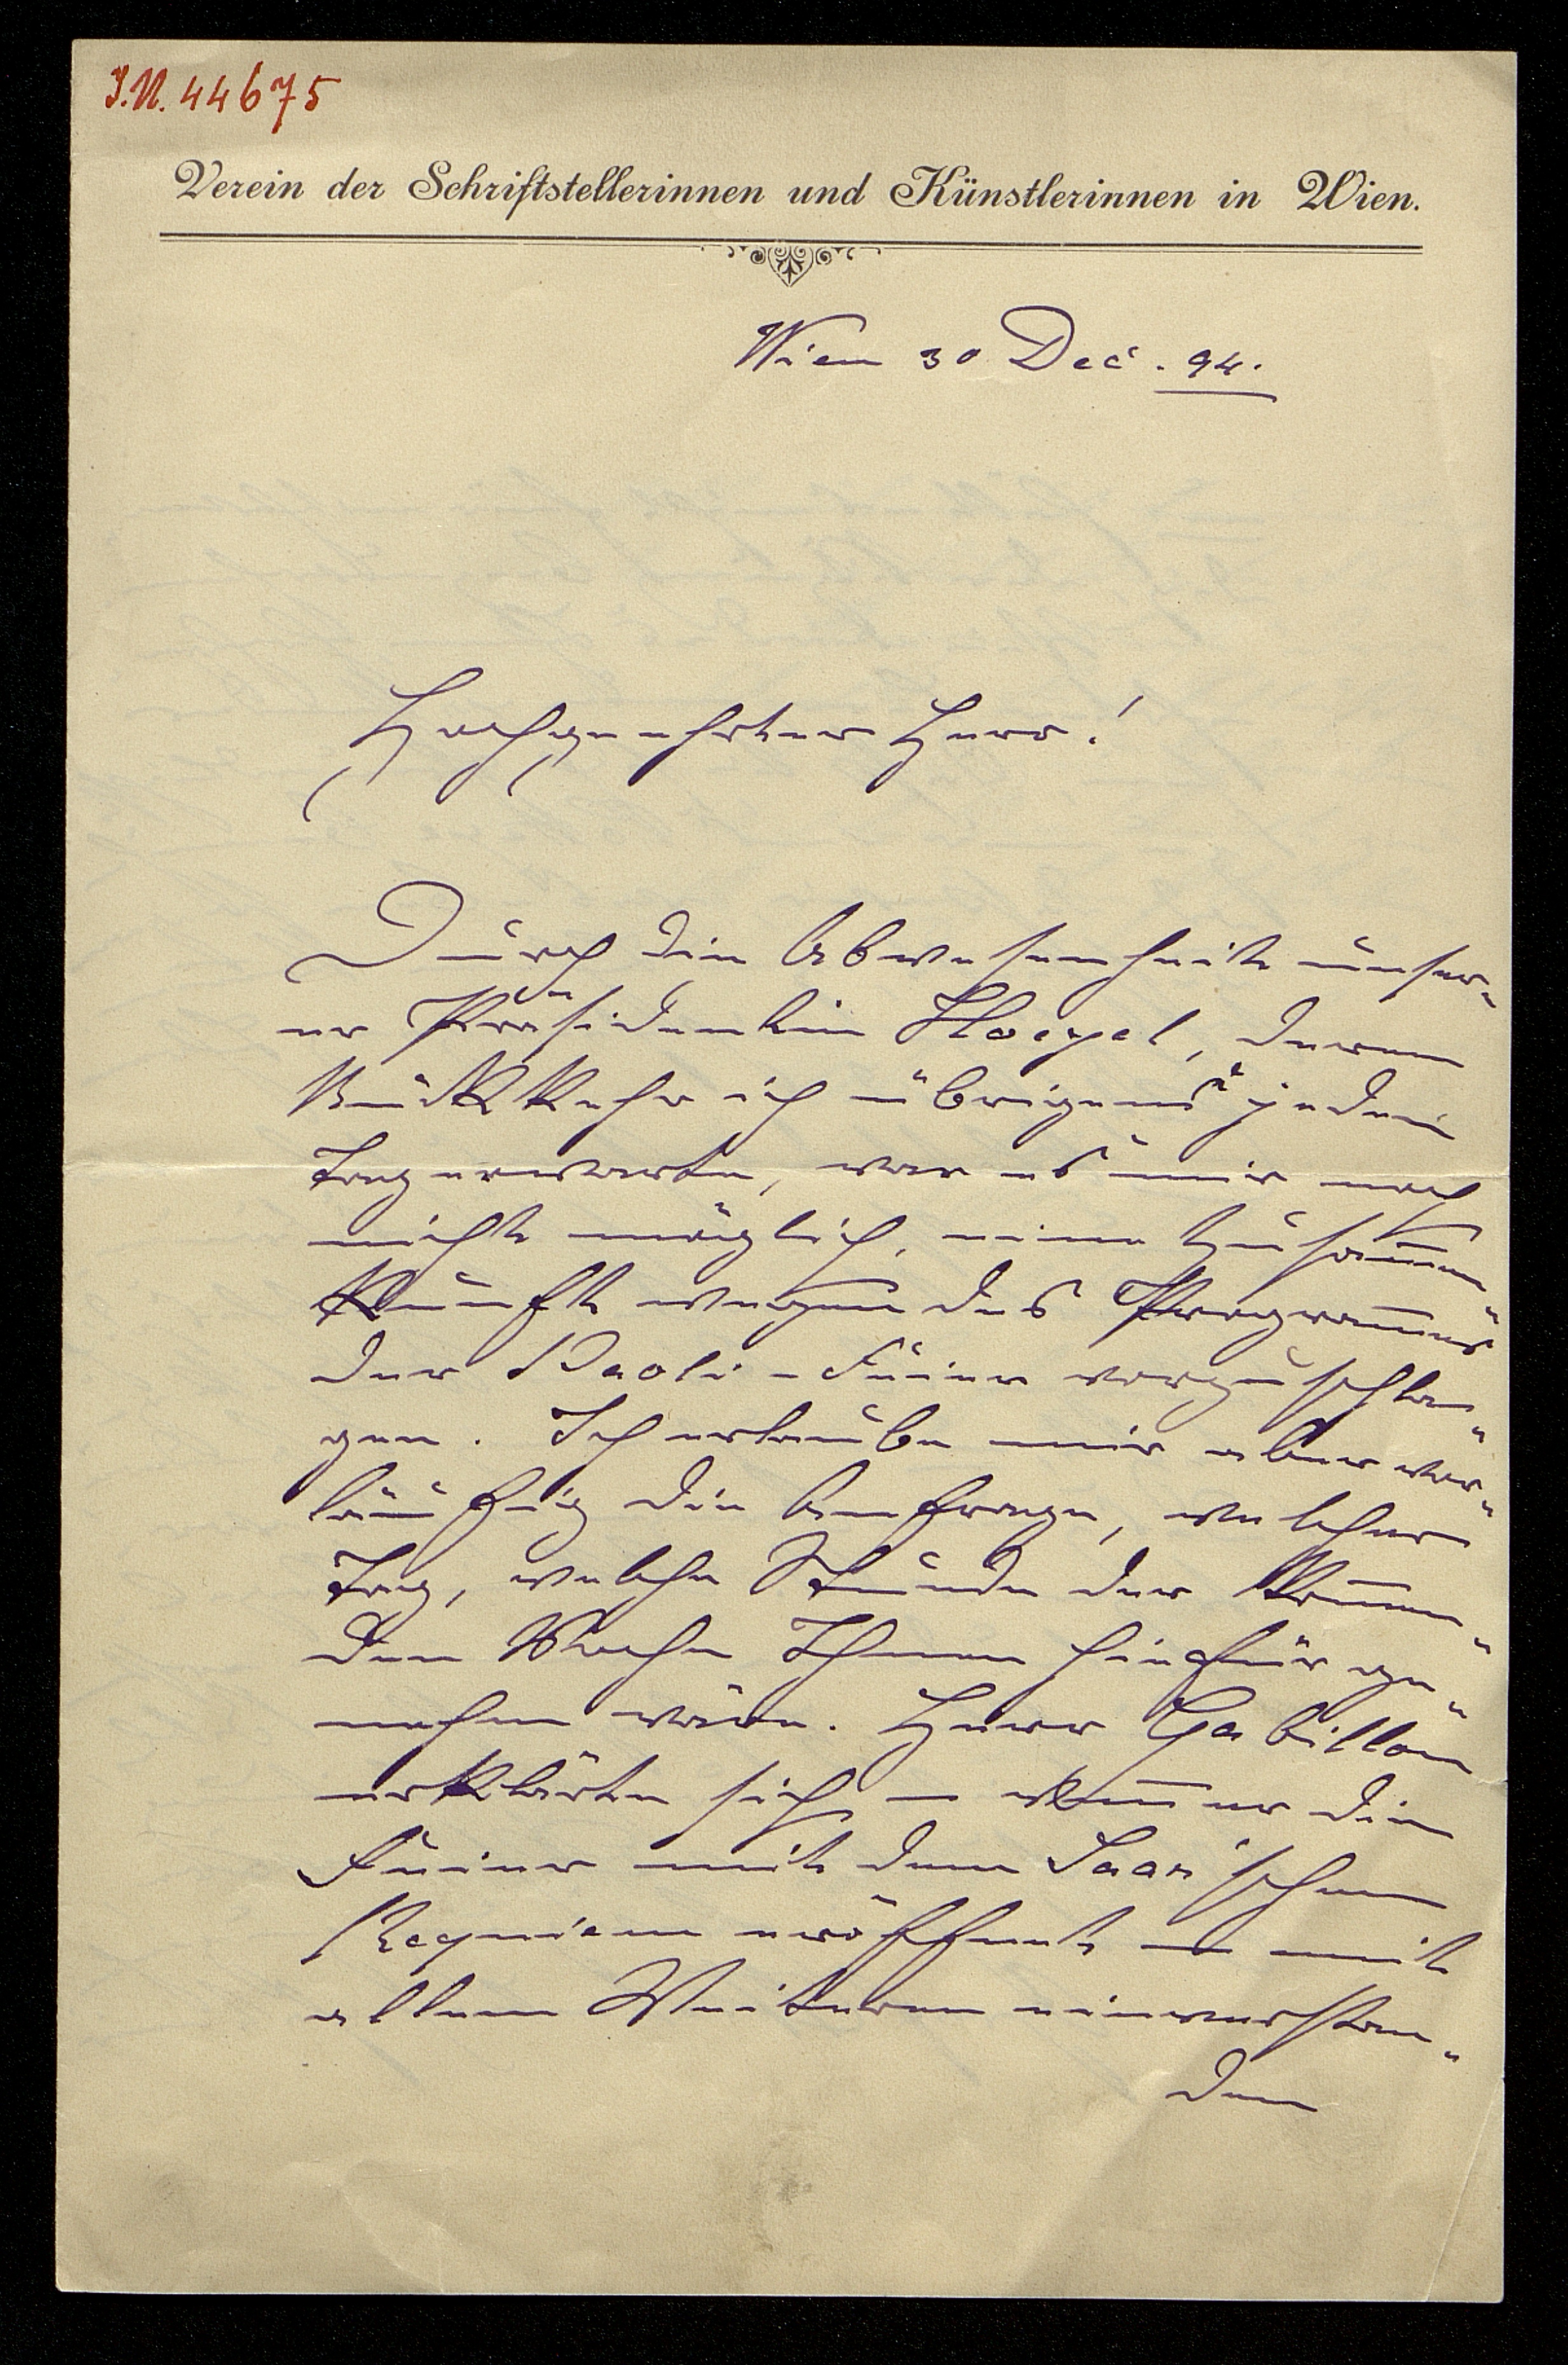 I.N. 44675
Verein der Schriftstellerinnen und Künstlerinnen in Wien.
Wien 30 Dec. 94.
Hochgeehrter Herr!
Durch die Abwesenheit unser-
er Präsidentin Hoegel, deren
Rückkehr ich übrigens jeden
Tag erwarte, war es mir noch
nicht möglich, eine Zusam̅en-
kunft wegen des Program̅es
der Paoli-Feier vorzuschla-
gen. Ich erlaube mir aber vor-
läufig die Anfrage, welcher
Tag, welche Stunde der kom̅en-
den Woche Ihnen hiefür ge-
nehm wäre. Herr Gabillon
erklärte sich – wen̅ er die
Feier mit dem Saar'schen
Requiem eröffnet – mit
allem Weiteren einverstan-
den